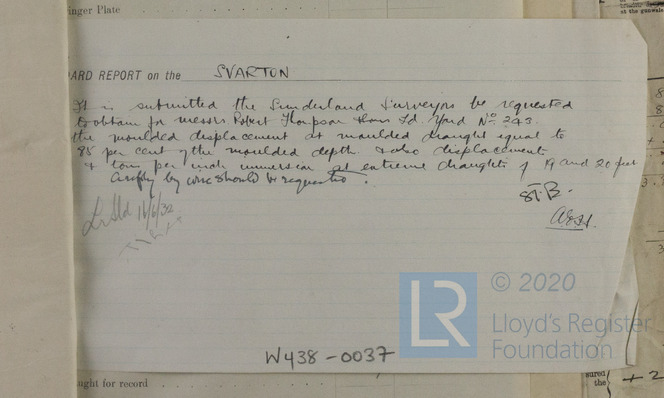 inger Plate
at the gunwale
ARD REPORT on the SVARTON
It is submitted the Sunderland Surveyors be requested
to obtain for Messrs Robert Thompson & Sons Ld. Yard No. 243.
the moulded displacement at moulded draught equal to
85 per cent of the moulded depth & also displacement
& tons per inch immersion at extreme draughts of 19 and 20 feet
by wire should be requested.
St.B.
16/6/32
W438-0037
LR
© 2020
Lloyd's Register
Foundation
ught for record
the
+ 2